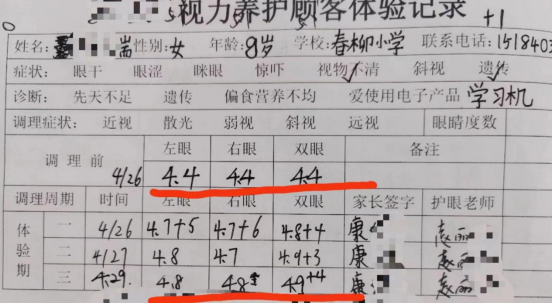 视力养护顾客体验记录 +1
姓名: 瑞 性别: 女 年龄: 8岁 学校: 春柳小学 联系电话: 1518403
症状: 眼干 眼涩 眯眼 惊吓 视物不清 斜视 遗传
诊断: 先天不足 遗传 偏食营养不均 爱使用电子产品 学习机
调理症状: 近视 散光 弱视 斜视 远视 眼睛度数
调理前 4/26 左眼 右眼 双眼 备注
4.4 4.4 4.4
调理周期 时间 左眼 右眼 双眼 家长签字 护眼老师
体验期 一 4/26 4.7+5 4.7+6 4.8+4 康
二 4/27 4.8 4.7 4.9+3 康
三 4.29. 4.8 4.8 4.9+4 康